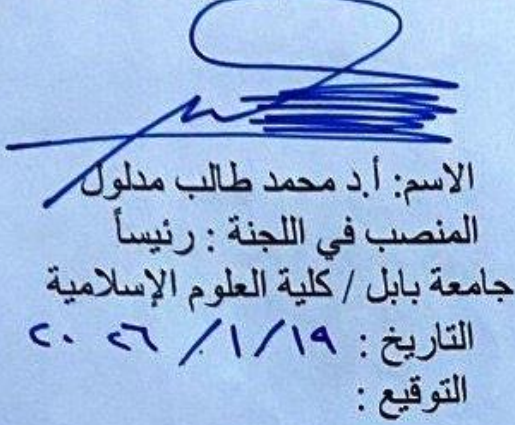 الاسم: أ.د محمد طالب مدلول
المنصب في اللجنة : رئيساً
جامعة بابل / كلية العلوم الإسلامية
التاريخ : ١٩/١/ ٢٠٢٦
التوقيع :